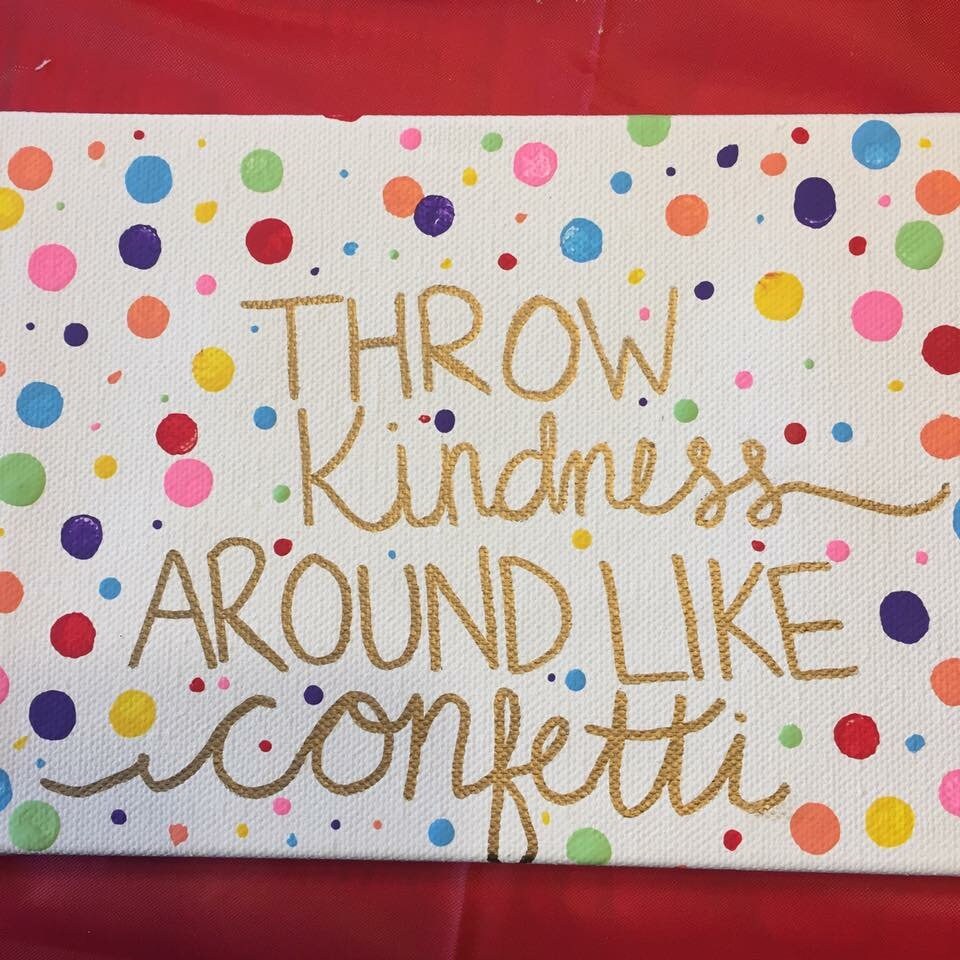 THROW
Kindness
AROUND LIKE
confetti